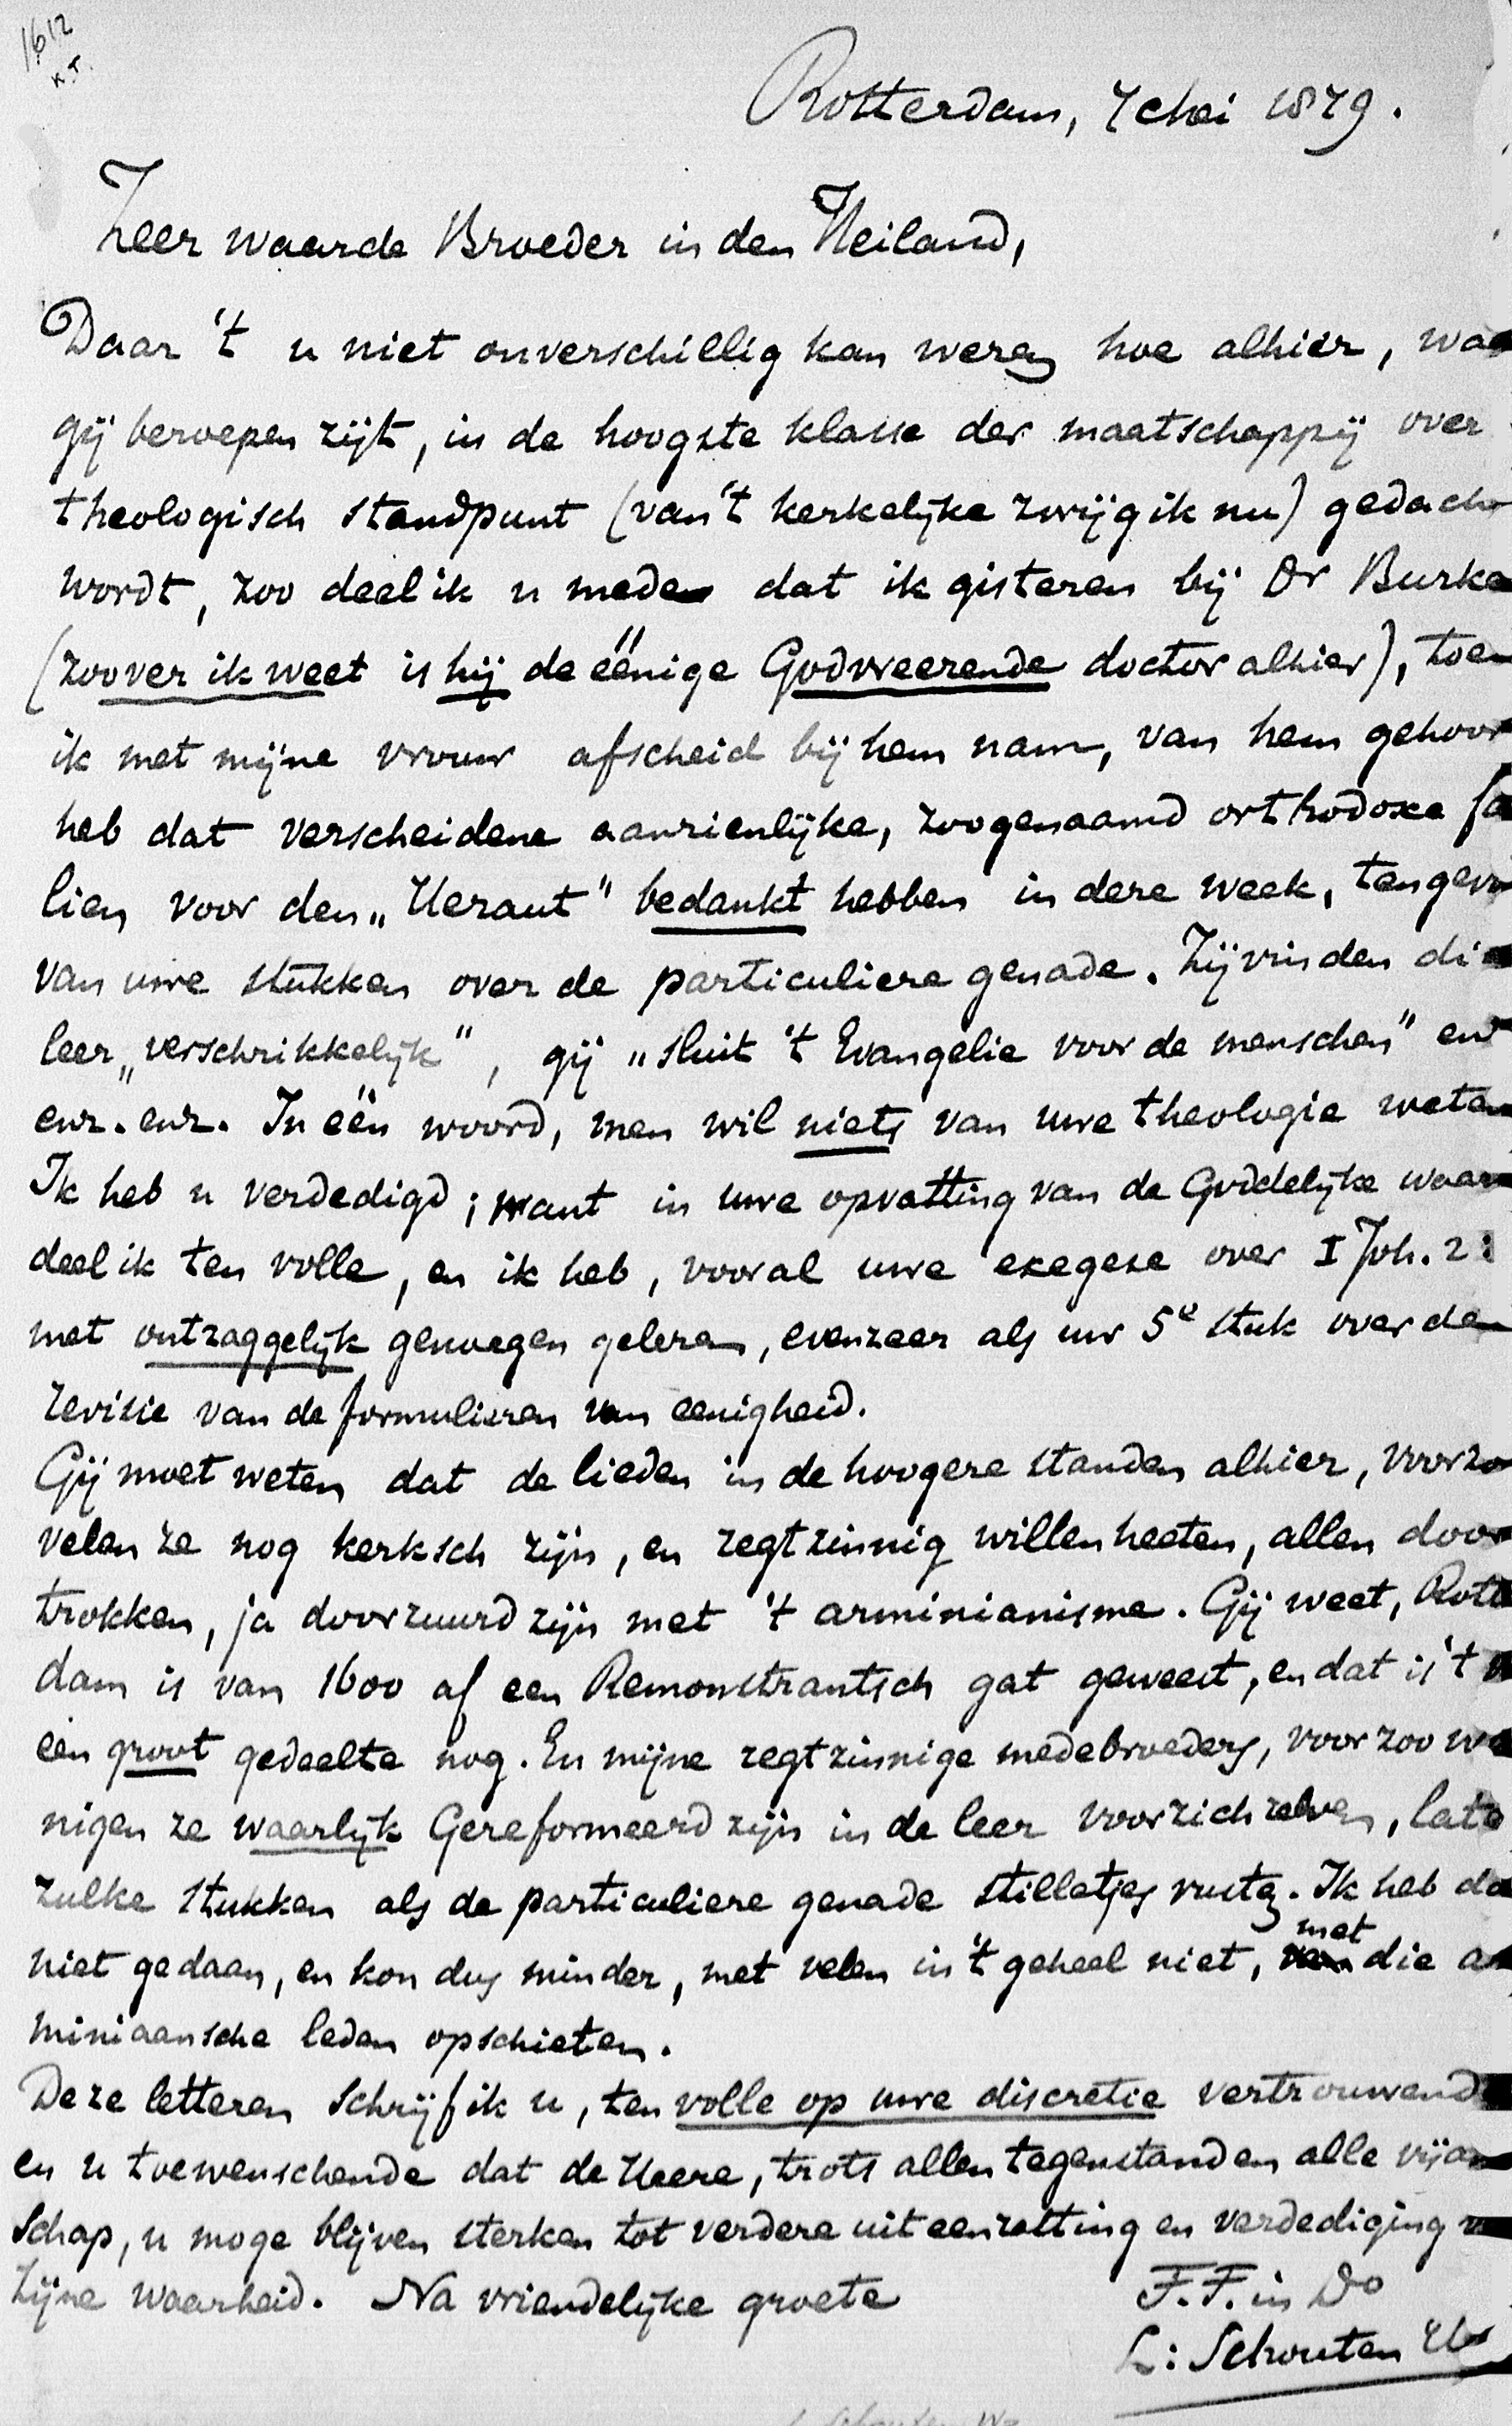 1612
K.T.
Rotterdam, 7 Mei 1879.
Zeer waarde Broeder in den Heiland,
Daar 't u niet onverschillig kan wezen hoe alhier, waa
gij beroepen zijt, in de hoogste klasse der maatschappij over
theologisch standpunt (van 't kerkelijke zwijg ik nu) gedach
wordt, zoo deel ik u mede dat ik gisteren bij Dr Burke
(zoover ik weet is hij de éénige Godvreezende doctor alhier), toen
ik met mijne vrouw afscheid bij hem nam, van hem gehoor
heb dat verscheidene aanzienlijke, zoogenaamd orthodoxe fa
liën voor den „Heraut" bedankt hebben in deze week, tengevo
van uwe stukken over de particuliere genade. Zij vinden di
leer „verschrikkelijk", gij „sluit 't Evangelie voor de menschen" en
enz. enz. In één woord, men wil niets van uwe theologie weten
Ik heb u verdedigd; want in uwe opvatting van de Goddelijke waar
deel ik ten volle, en ik heb, vooral uwe exegese over I Joh. 2:
met ontzaggelijk genoegen gelezen, evenzeer als uw 5e stuk over de
revisie van de formulieren van eenigheid.
Gij moet weten dat de lieden in de hoogere standen alhier, voorzo
velen ze nog kerksch zijn, en regtzinnig willen heeten, allen door
trokken, ja doorzuurd zijn met 't arminianisme. Gij weet, Rott
dam is van 1600 af een Remonstrantsch gat geweest, en dat is 't
een groot gedeelte nog. En mijne regtzinnige medebroeders, voor zoo we
nigen ze waarlijk Gereformeerd zijn in de leer voor zich zelven, late
zulke stukken als de particuliere genade stilletjes rusten. Ik heb da
niet gedaan, en kon dus minder, met velen in 't geheel niet, met die a
miniaansche leden opschieten.
Deze letteren schrijf ik u, ten volle op uwe discretie vertrouwend
en u toewenschende dat de Heere, trots allen tegenstand en alle vijan
schap, u moge blijven sterken tot verdere uiteenzetting en verdediging v
Zijne waarheid. Na vriendelijke groete
F.F. in Do
L: Schouten